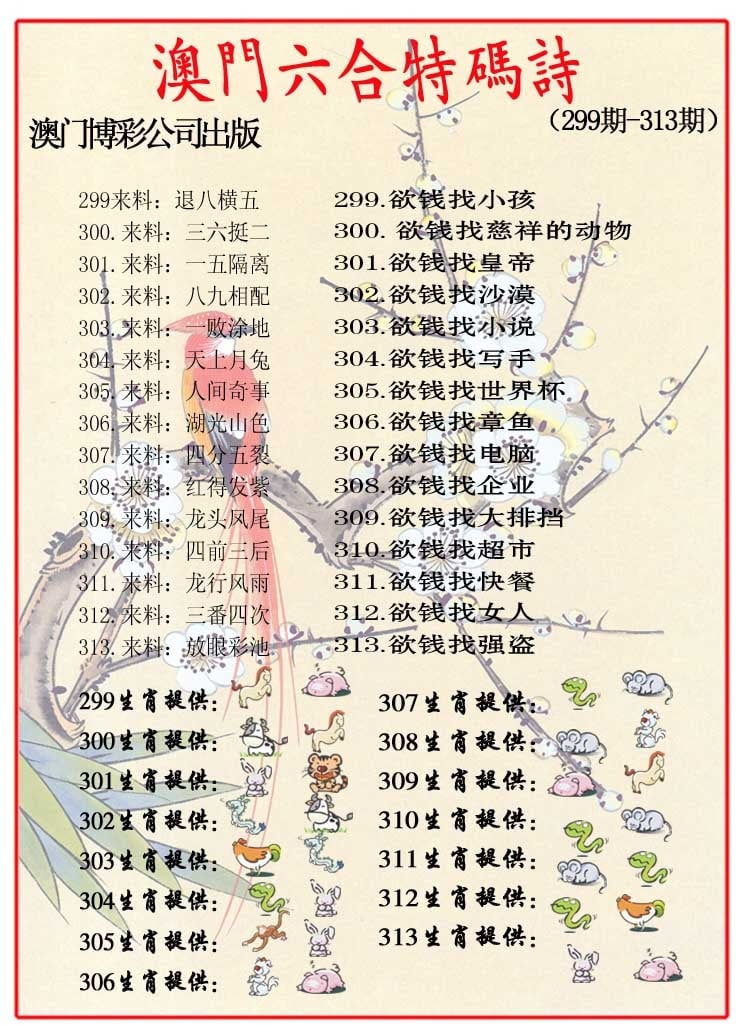 澳門六合特碼詩
澳门博彩公司出版
（299期-313期）
299来料：退八横五 299.欲钱找小孩
300.来料：三六挺二 300.欲钱找慈祥的动物
301.来料：一五隔离 301.欲钱找皇帝
302.来料：八九相配 302.欲钱找沙漠
303.来料：一败涂地 303.欲钱找小说
304.来料：天上月兔 304.欲钱找写手
305.来料：人间奇事 305.欲钱找世界杯
306.来料：湖光山色 306.欲钱找章鱼
307.来料：四分五裂 307.欲钱找电脑
308.来料：红得发紫 308.欲钱找企业
309.来料：龙头凤尾 309.欲钱找大排挡
310.来料：四前三后 310.欲钱找超市
311.来料：龙行风雨 311.欲钱找快餐
312.来料：三番四次 312.欲钱找女人
313.来料：放眼彩池 313.欲钱找强盗
299生肖提供： 307生肖提供：
300生肖提供： 308生肖提供：
301生肖提供： 309生肖提供：
302生肖提供： 310生肖提供：
303生肖提供： 311生肖提供：
304生肖提供： 312生肖提供：
305生肖提供： 313生肖提供：
306生肖提供：